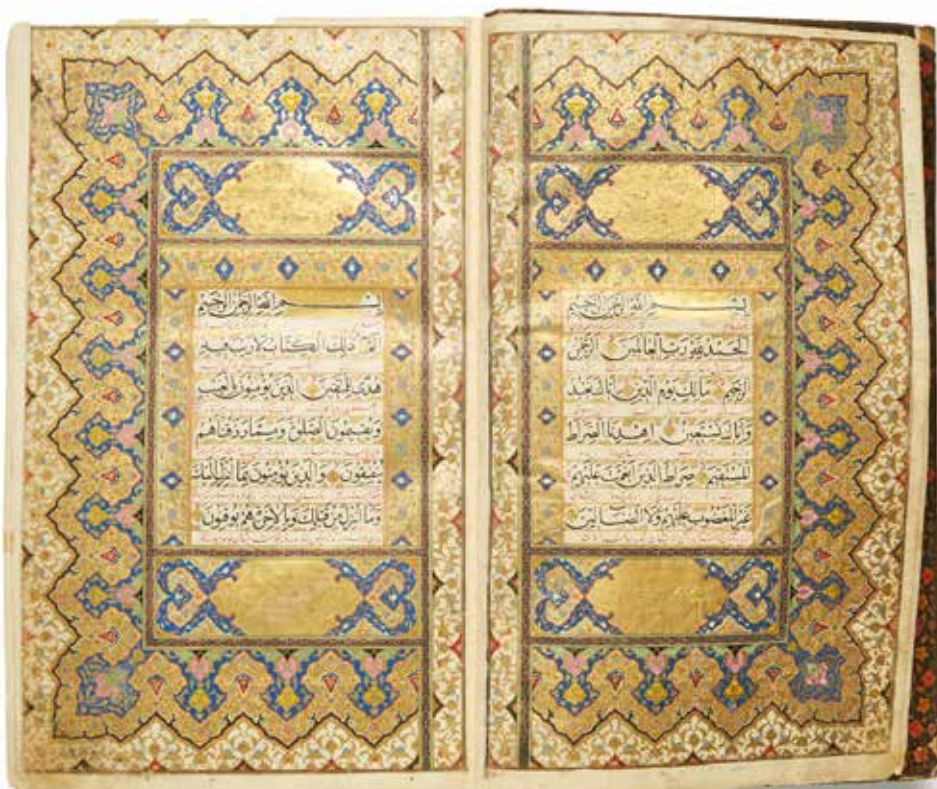 بسم الله الرحمن الرحيم
الحمد لله رب العالمين الرحمن
الرحيم مالك يوم الدين إياك نعبد
وإياك نستعين اهدنا الصراط
المستقيم صراط الذين أنعمت عليهم
غير المغضوب عليهم ولا الضالين
بسم الله الرحمن الرحيم
الم ذلك الكتاب لا ريب فيه
هدى للمتقين الذين يؤمنون بالغيب
ويقيمون الصلوة ومما رزقناهم
ينفقون والذين يؤمنون بما أنزل إليك
وما أنزل من قبلك وبالآخرة هم يوقنون